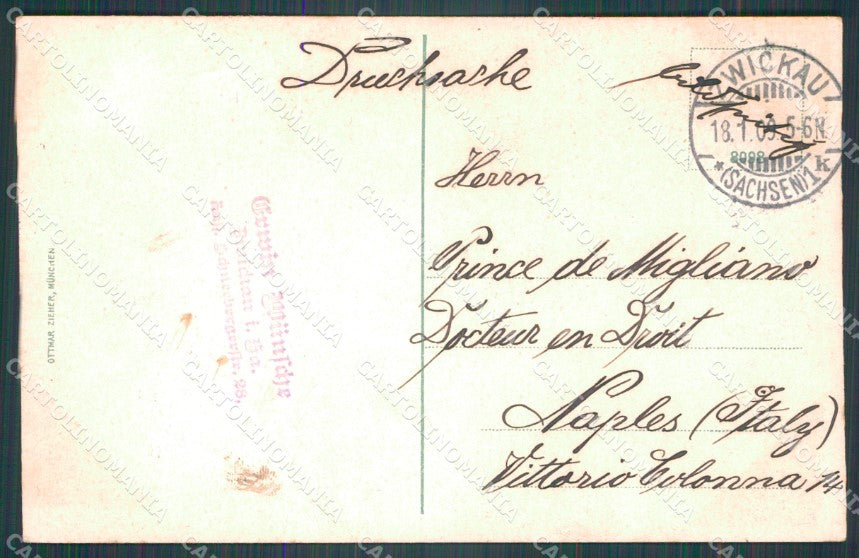 Drucksache
ZWICKAU
18.1.09.5-6N.
*(SACHSEN)1k
8098
Herrn
Prince de Migliano
Docteur en Droit
Naples (Italy)
Vittorio Colonna 14
Wünsche
Zwickau i. Sa.
OTTMAR ZIEHER, MÜNCHEN
CARTOLINOMANIA